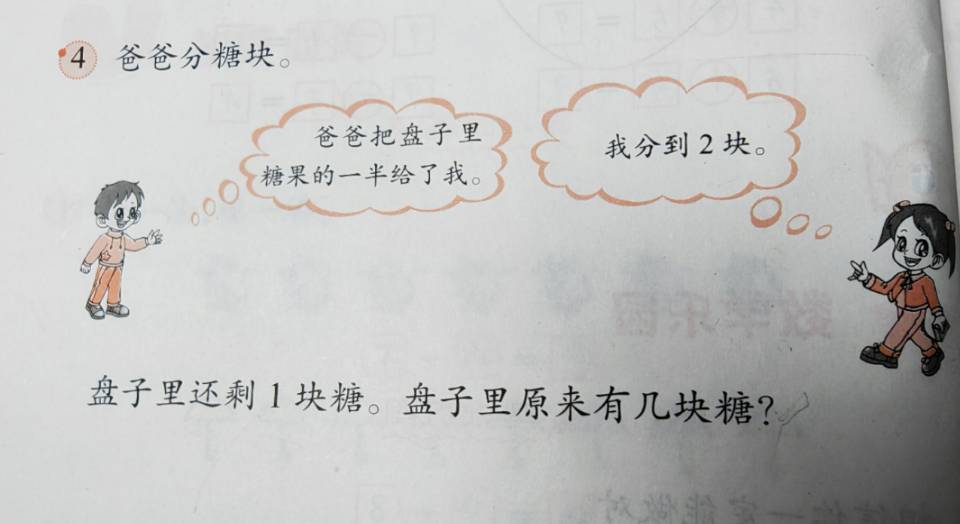 4 爸爸分糖块。
爸爸把盘子里
糖果的一半给了我。
我分到2块。
盘子里还剩1块糖。盘子里原来有几块糖?